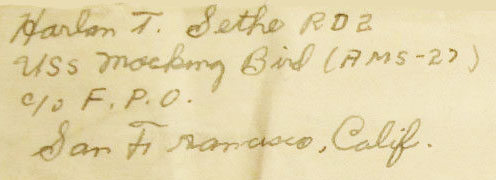 Harlan T. Sethe RD2
USS Mocking Bird (AMS-27)
c/o F.P.O.
San Francisco, Calif.